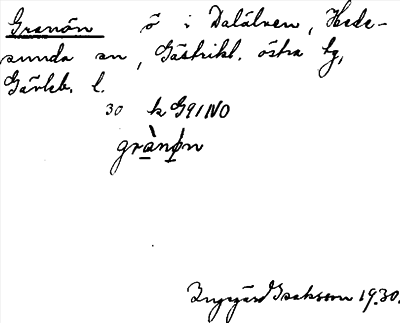 Granön ö i Dalälven, Hede-
sunda sn, Gästrikl. östra tg,
Gävleb. l.
30 k G91NO
grànøn
Ingegärd Isaksson 1930.